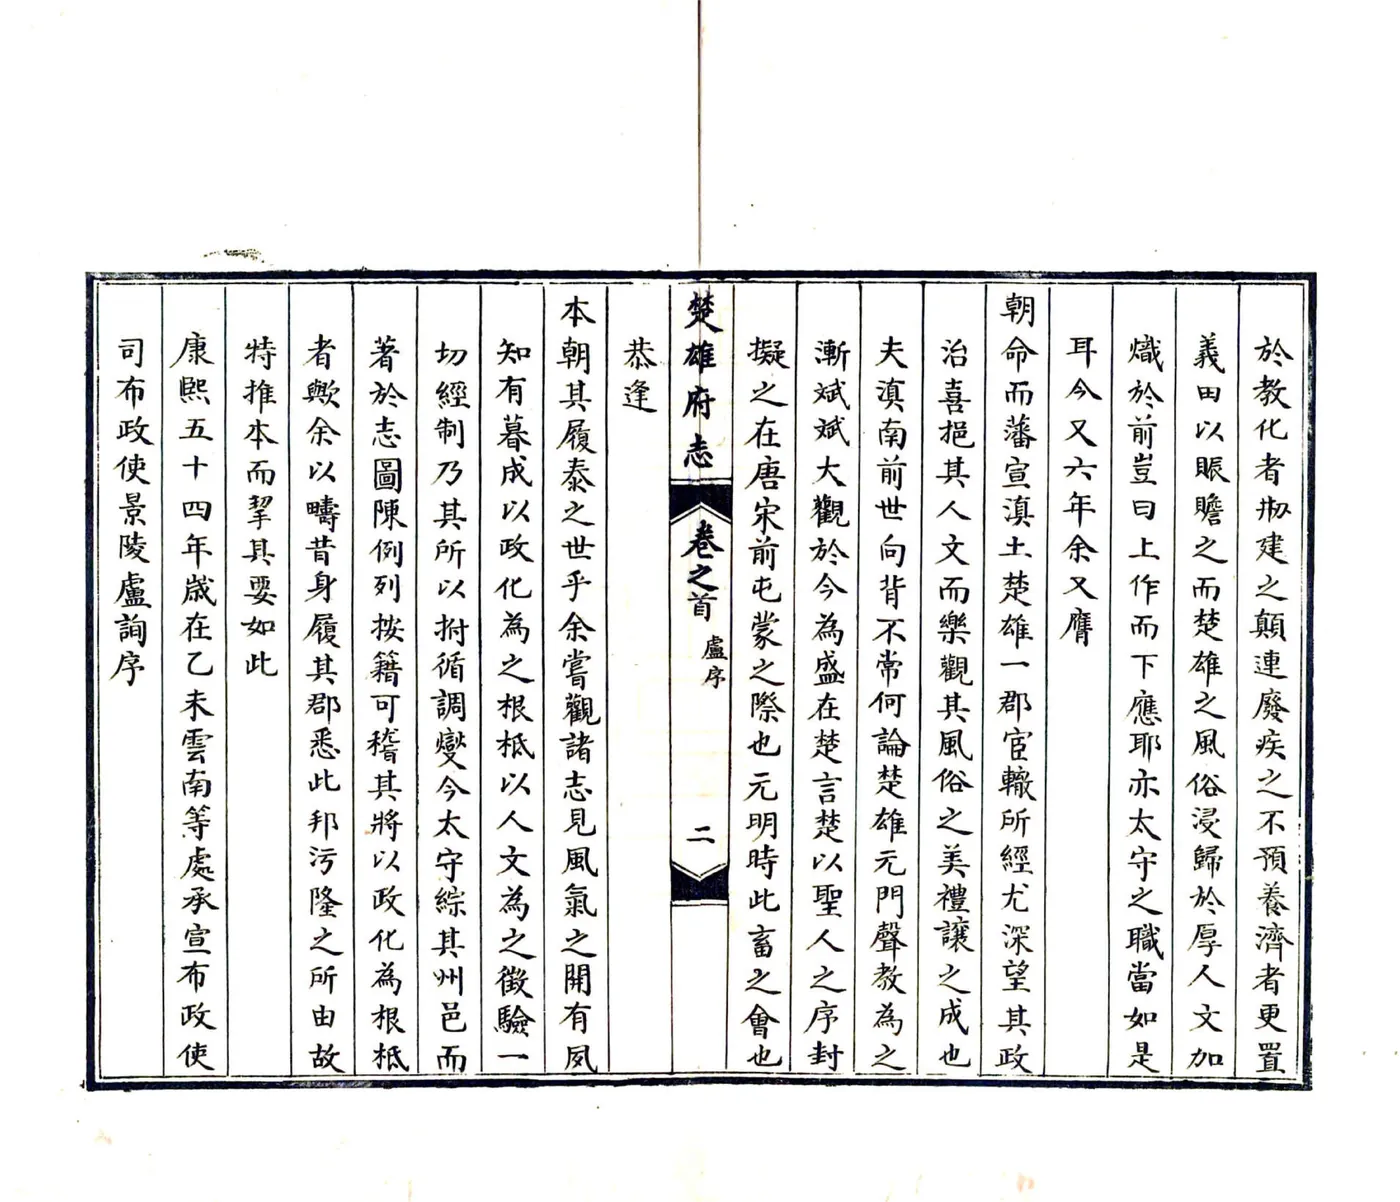 於教化者刱建之顛連廢疾之不預養濟者更置
義田以賑贍之而楚雄之風俗浸歸於厚人文加
熾於前豈曰上作而下應耶亦太守之職當如是
耳今又六年余又膺
朝命而藩宣滇土楚雄一郡宦轍所經尤深望其政
治喜挹其人文而樂觀其風俗之美禮讓之成也
夫滇南前世向背不常何論楚雄元門聲教為之
漸斌斌大觀於今為盛在楚言楚以聖人之序封
擬之在唐宋前屯蒙之際也元明時此畜之會也
楚雄府志
卷之首
盧序
二
恭逢
本朝其履泰之世乎余嘗觀諸志見風氣之開有夙
知有暮成以政化為之根柢以人文為之徵驗一
切經制乃其所以拊循調燮今太守綜其州邑而
著於志圖陳例列按籍可稽其將以政化為根柢
者歟余以疇昔身履其郡悉此邦污隆之所由故
特推本而挈其要如此
康熙五十四年歲在乙未雲南等處承宣布政使
司布政使景陵盧詢序